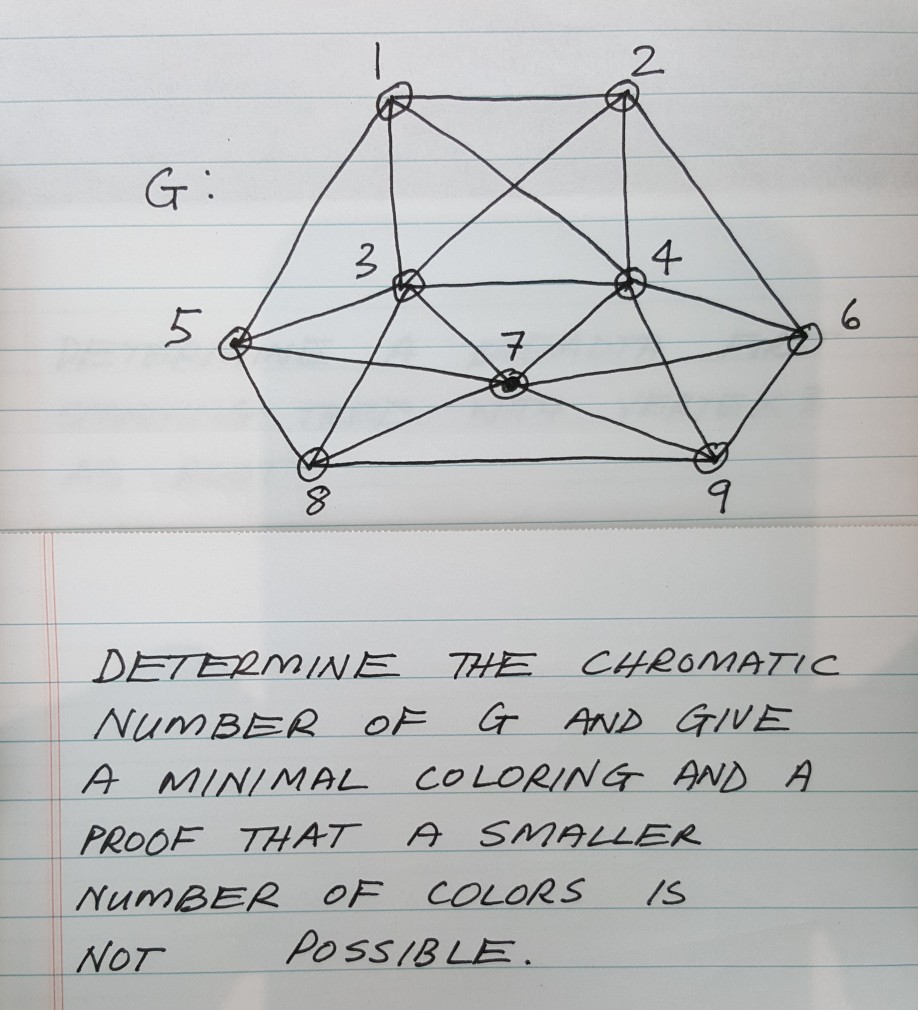 1 2
G:
3 4
5 7 6
8 9
DETERMINE THE CHROMATIC
NUMBER OF G AND GIVE
A MINIMAL COLORING AND A
PROOF THAT A SMALLER
NUMBER OF COLORS IS
NOT POSSIBLE.